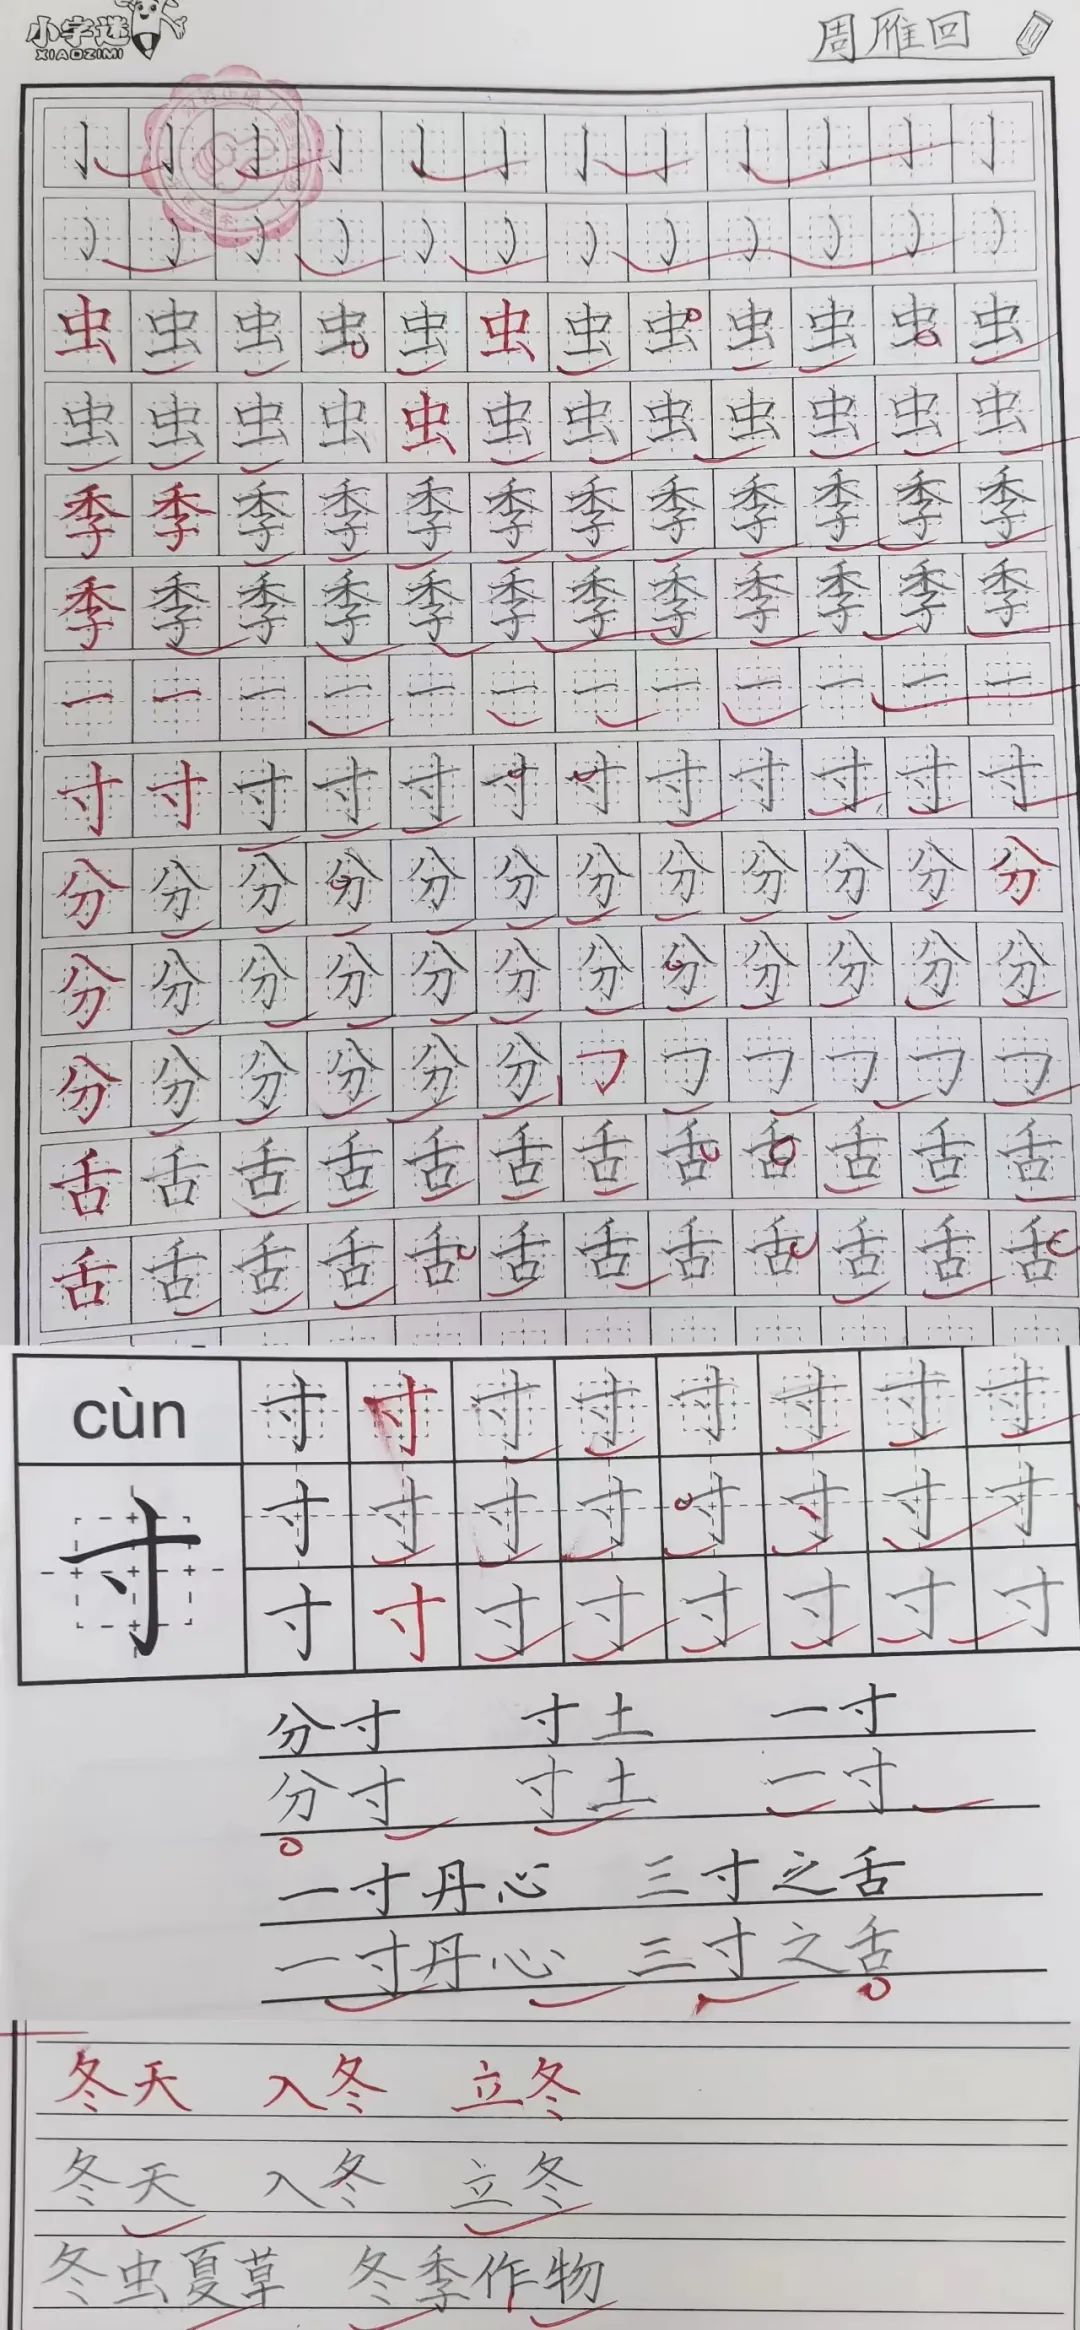 小字迷
XIAOZIMI
周雁回
亅亅亅亅亅亅亅亅亅亅亅亅
虫虫虫虫虫虫虫虫虫虫虫虫
虫虫虫虫虫虫虫虫虫虫虫虫
季季季季季季季季季季季季
季季季季季季季季季季季季
一一一一一一一一一一一一
寸寸寸寸寸寸寸寸寸寸寸寸
分分分分分分分分分分分分
分分分分分分分分分分分分
分分分分分分
舌舌舌舌舌舌舌舌舌舌舌舌
舌舌舌舌舌舌舌舌舌舌舌舌
cùn 寸寸寸寸寸寸寸寸
寸 寸寸寸寸寸寸寸寸
寸寸寸寸寸寸寸寸
分寸 寸土 一寸
分寸 寸土 一寸
一寸丹心 三寸之舌
一寸丹心 三寸之舌
冬天 入冬 立冬
冬天 入冬 立冬
冬虫夏草 冬季作物